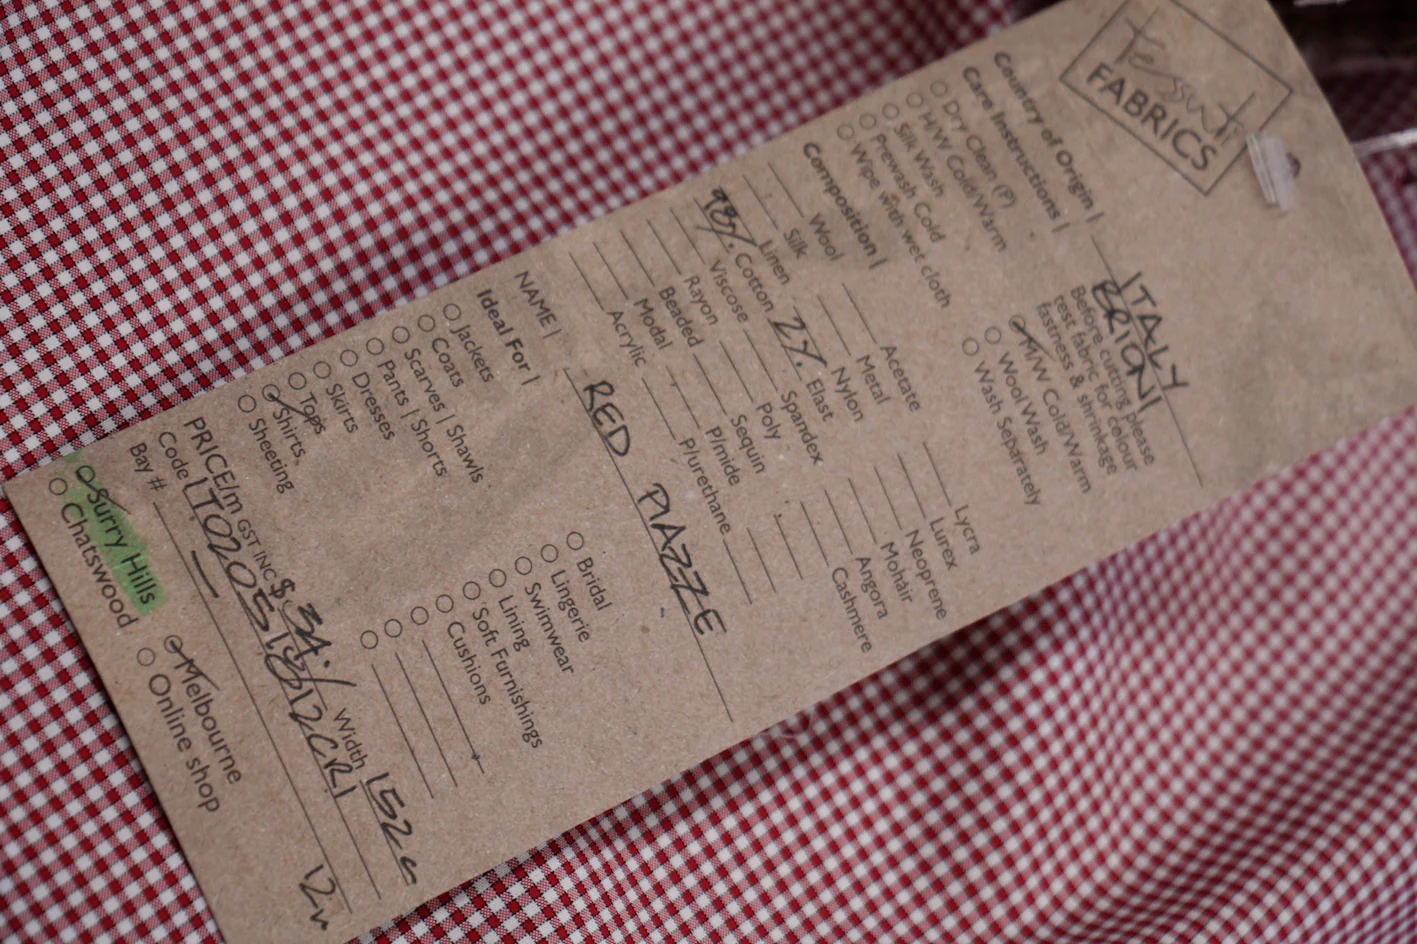 Tessuti
FABRICS
Country of Origin | ITALY
BRIONI
Care Instructions |
Before cutting please
test fabric for colour
fastness & shrinkage
Dry Clean (P)
H/W Cold/Warm
Silk Wash
Prewash Cold
Wipe with wet cloth
M/W Cold/Warm
Wool Wash
Wash Separately
Composition |
Wool
Silk
Linen
98% Cotton
Viscose
Rayon
Beaded
Modal
Acrylic
Acetate
Metal
Nylon
2% Elast
Spandex
Poly
Sequin
P/mide
P/urethane
Lycra
Lurex
Neoprene
Mohair
Angora
Cashmere
NAME | RED PIAZZE
Ideal For |
Jackets
Coats
Scarves | Shawls
Pants | Shorts
Dresses
Skirts
Tops
Shirts
Sheeting
Bridal
Lingerie
Swimwear
Lining
Soft Furnishings
Cushions
PRICE/m GST INC $ 34. Width 152c
Code
Bay #
Surry Hills
Chatswood
Melbourne
Online shop